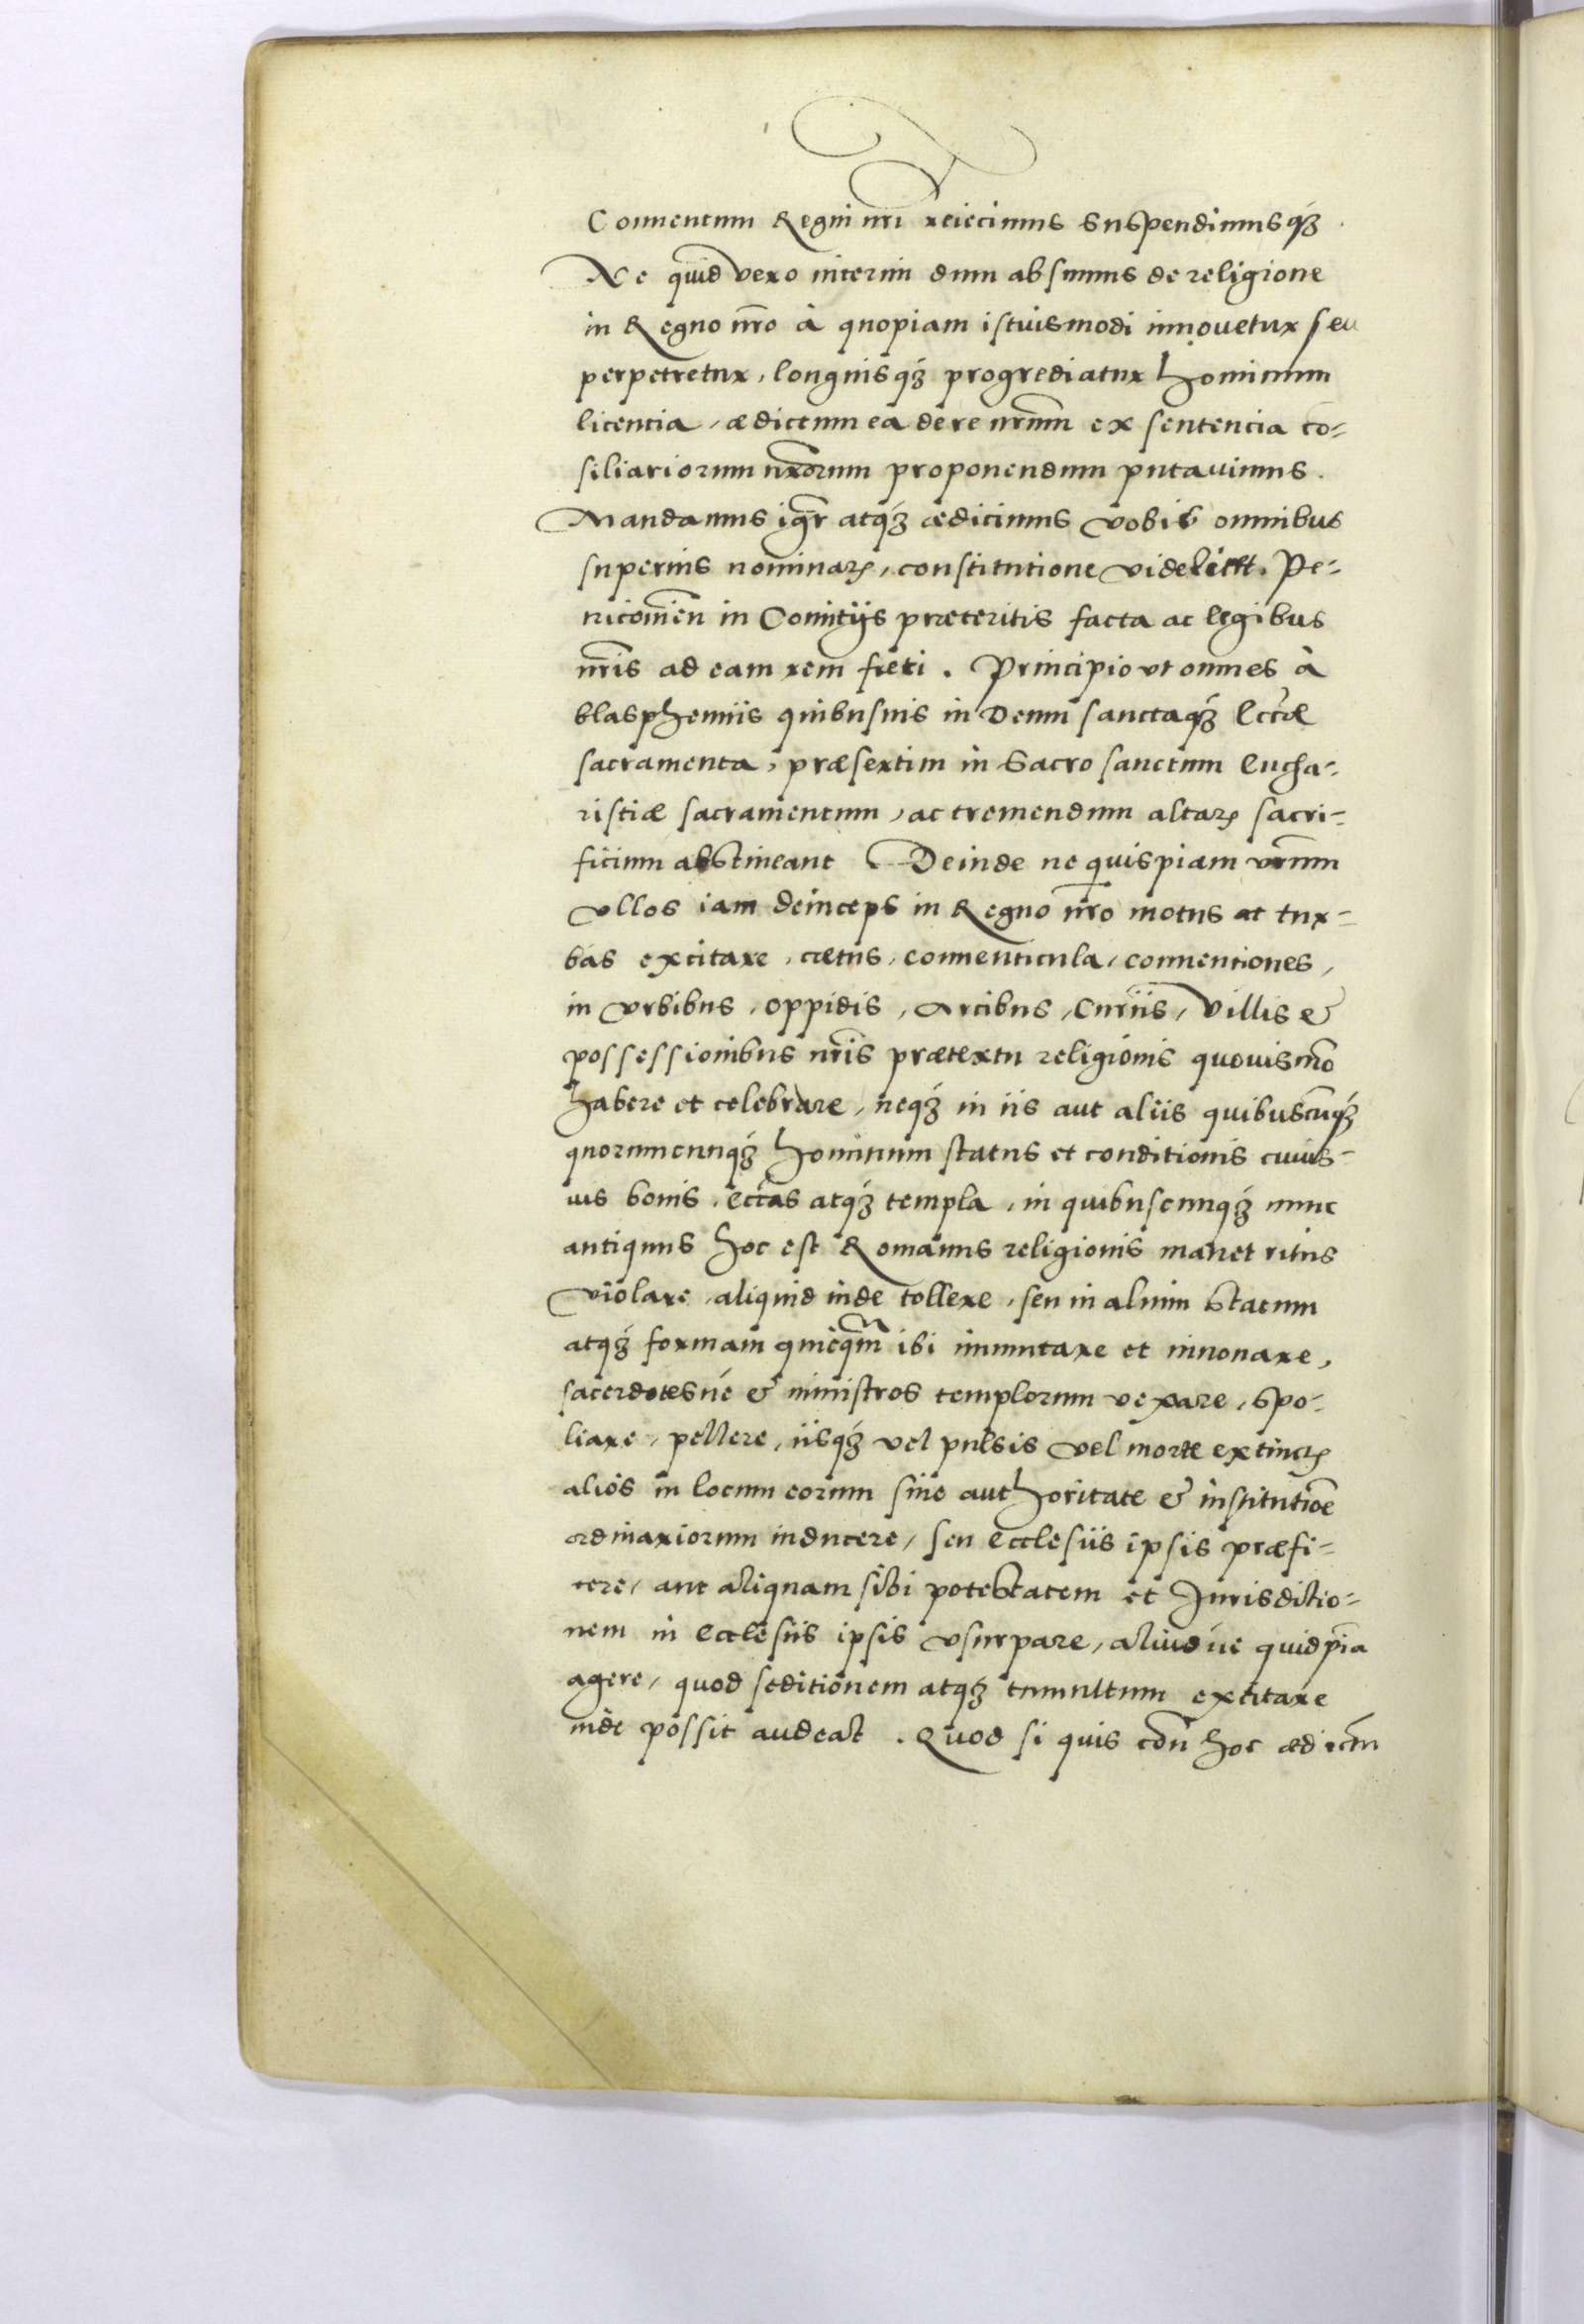 Conuentum Regni nri reiecimus suspendimusq́3
Ne quid vero interim dum absumus de religione
in Regno nr̄o à quopiam istiusmodi innouetur seu
perpetretur, longiusq́3 progrediatur hominum
licentia, ædictum ea de re nr̄um ex sententia co-
siliariorum nr̄orum proponendum putauimus.
Mandamus igr̄ atq́3 ædicimus vobis omnibus
superius nominatꝭ, constitutione videlicet Pe-
tricouien̄ in Comitijs præteritis facta ac legibus
nr̄is ad eam rem freti. Principio vt omnes à
blasphemiis quibusuis in Deum sanctaq́3 Eccl̄æ
sacramenta, præsertim in Sacro sanctum Eucha-
ristiæ sacramentum, ac tremendum altarꝭ sacri-
ficium abstineant Deinde ne quispiam vr̄um
vllos iam deinceps in Regno nr̄o motus ac tur-
bas excitare, cætus, conuenticula, conuentiones,
in vrbibus, oppidis, Arcibus, Curiis, Villis &
possessionibus nr̄is prætextu religionis quouismo͞
habere et celebrare, neq́3 in iis aut aliis quibuscūq́3
quorumcunq́3 hominum status et conditionis cuius-
uis bonis, eccl̄as atq́3 templa, in quibuscunq́3 nunc
antiquus hoc est Romanus religionis manet ritus
violare, aliquid inde tollere, seu in alium statum
atq́3 formam quicq̄m ibi immutare et innouare,
sacerdotesúe & ministros templorum vexare, spo-
liare, pellere, iisq́3 vel pulsis vel morte extinctꝭ
alios in locum eorum sine authoritate & institutiōe
ordinariorum inducere, seu Ecclesiis ipsis præfi-
cere, aut aliquam sibi potestatem et Jurisdictio-
nem in Ecclesiis ipsis vsurpare, aliudúe quidpia͞
agere, quod seditionem atq́3 tumultum excitare
inde possit audeat. Quod si quis con͞ hoc ædictm͞